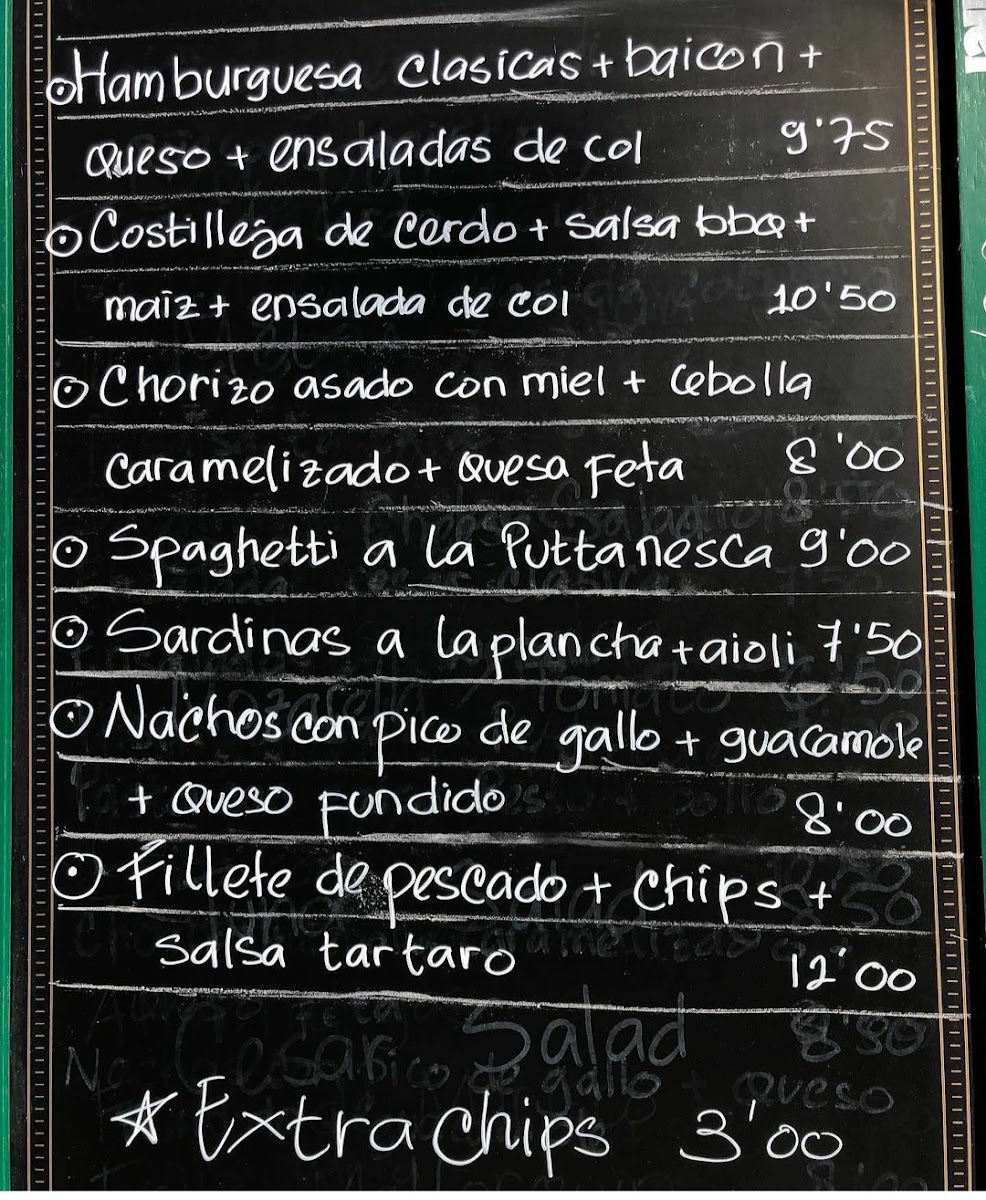 Hamburguesa clasicas + baicon +
Queso + ensaladas de col 9'75
Costilleja de cerdo + salsa bbq +
maiz + ensalada de col 10'50
Chorizo asado con miel + cebolla
caramelizado + Quesa Feta 8'00
Spaghetti a la Puttanesca 9'00
Sardinas a la plancha + aioli 7'50
Nachos con pico de gallo + guacamole
+ Queso Fundido 8'00
Fillete de pescado + chips +
salsa tartaro 12'00
Salad 8'50
Cesar
pico de gallo + Queso
☆ Extra chips 3'00